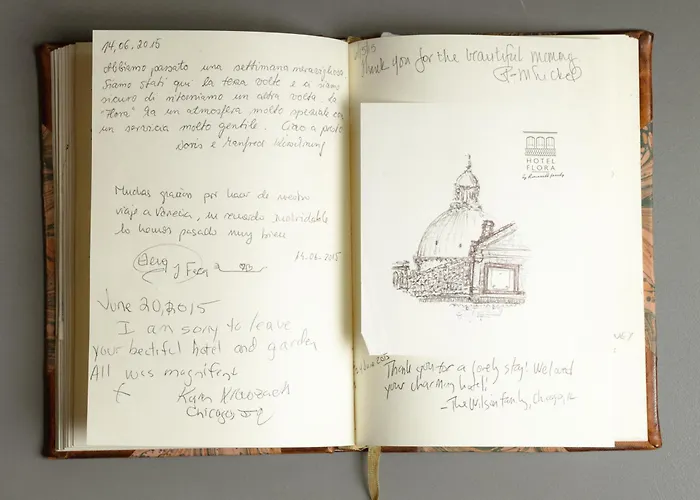 14.06.2015
Abbiamo passato una settimana meravigliosa
Siamo stati qui la terza volta e siamo
sicuro di ritorniamo un altra volta
"Flora" ha un atmosfera molto speziale con
un servicio molto gentile. Ciao a presto
Doris e Manfred
Muchas gracias por hacer de nuestro
viaje a Venecia, un recuerdo inolvidable
lo hemos pasado muy bien
19.06.2015
June 20, 2015
I am sorry to leave
your beatiful hotel and garden
All was magnifent
Karen
Chicago
Thank you for the beautiful morning
HOTEL
FLORA
Thank you for a lovely stay! We loved
your charming hotel!
- The Wilson family, Chicago, IL